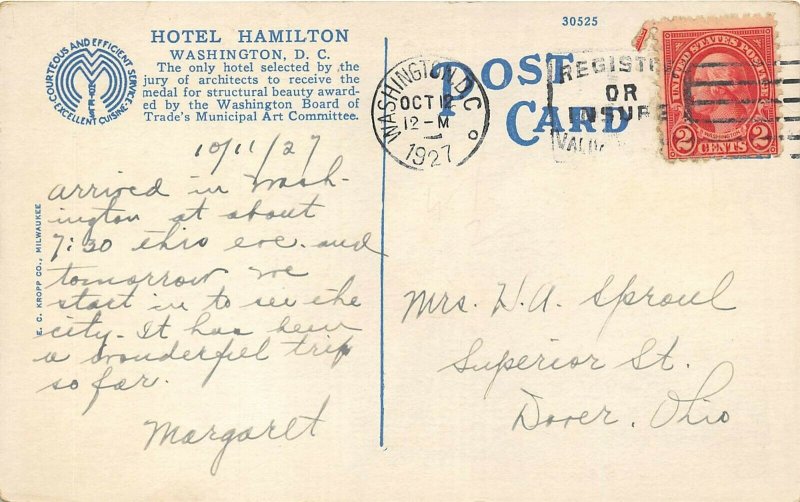 30525
HOTEL HAMILTON
WASHINGTON, D. C.
The only hotel selected by the
jury of architects to receive the
medal for structural beauty award-
ed by the Washington Board of
Trade's Municipal Art Committee.
COURTEOUS AND EFFICIENT SERVICE
EXCELLENT CUISINE
POST
CARD
WASHINGTON, D.C.
OCT 12
12-M
1927
REGISTER
OR
INSURE
VALU
UNITED STATES POSTAGE
WASHINGTON
2 CENTS 2
10/11/27
arrived in Wash-
ington at about
7:30 this eve. and
tomorrow we
start in to see the
city. It has been
a wonderful trip
so far.
Margaret
E. C. KROPP CO., MILWAUKEE
Mrs. H. A. Sproul
Superior St.
Dover, Ohio